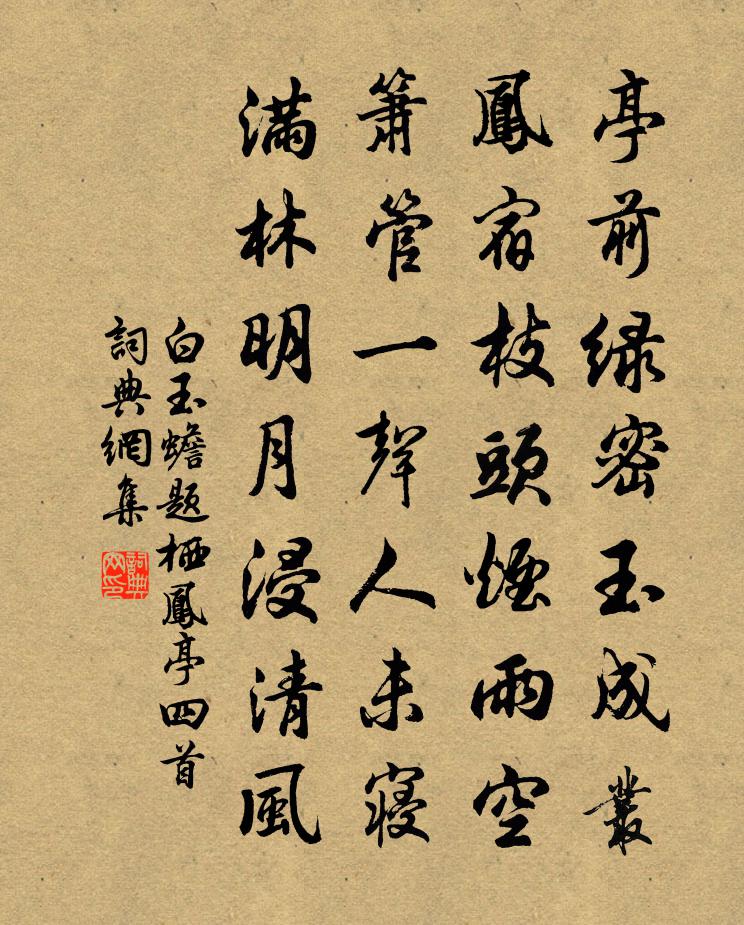 亭前綠密玉成叢
鳳宿枝頭煙雨空
簫管一聲人未寢
滿林明月浸清風
白玉蟾題栖鳳亭四首
詞典網集
詞典網印